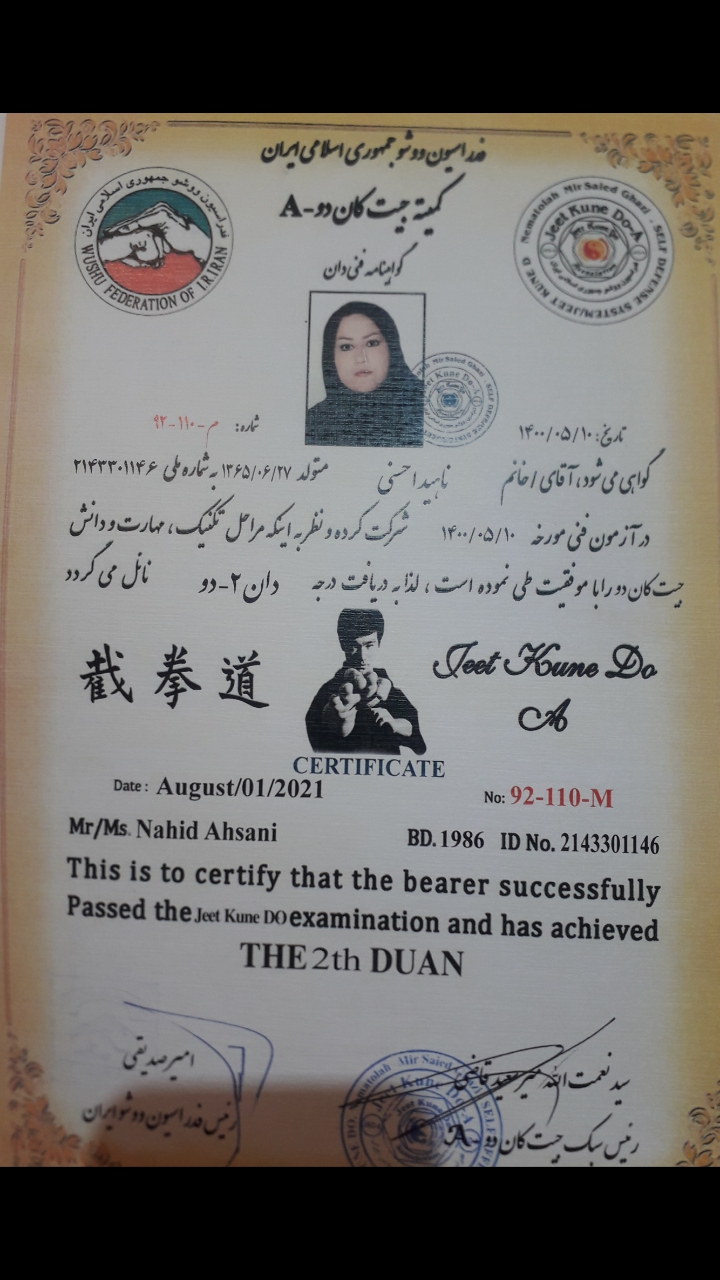 فدراسیون ووشو جمهوری اسلامی ایران
کمیته جیت کان دو-A
گواهینامه فنی دان
فدراسیون ووشو جمهوری اسلامی ایران
WUSHU FEDERATION OF I.R.IRAN
Nematolah Mir Saied Ghazi . SELF DEFENSE SYSTEM/JEET KUNE D
Jeet Kune Do-A
تاریخ: ۱۴۰۰/۰۵/۱۰
شماره: م-۱۱۰-۹۲
گواهی می شود، آقای / خانم ناهید احسنی متولد ۱۳۶۵/۰۶/۲۷ به شماره ملی ۲۱۴۳۳۰۱۱۴۶
در آزمون فنی مورخه ۱۴۰۰/۰۵/۱۰ شرکت کرده و نظر به اینکه مراحل تکنیک، مهارت و دانش
جیت کان دو را با موفقیت طی نموده است، لذا به دریافت درجه دان ۲-دو نائل می گردد
截拳道
Jeet Kune Do
A
CERTIFICATE
Date: August/01/2021
No: 92-110-M
Mr/Ms. Nahid Ahsani BD. 1986 ID No. 2143301146
This is to certify that the bearer successfully
Passed the Jeet Kune DO examination and has achieved
THE 2th DUAN
امیر صدیقی
رئیس فدراسیون ووشو ایران
سید نعمت الله میرسعید قاضی
رئیس سبک جیت کان دو-A